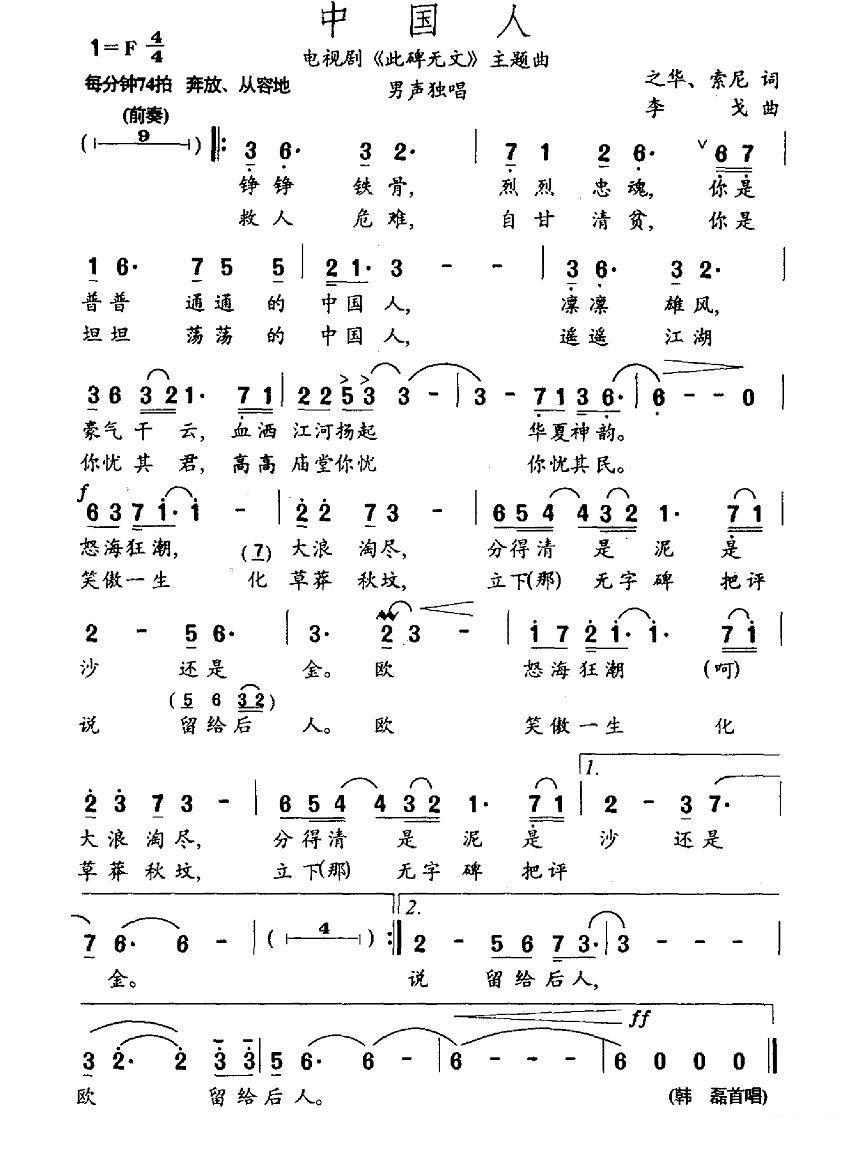 中国人
1=F 4/4
电视剧《此碑无文》主题曲
每分钟74拍 奔放、从容地
男声独唱
之华、索尼 词
李 戈 曲
(前奏)
( 9 ) ‖: 3 6· 3 2· | 7 1 2 6· ∨ 6 7 |
铮铮 铁骨, 烈烈 忠魂, 你是
救人 危难, 自甘 清贫, 你是
1 6· 7 5 5 | 2 1· 3 - - | 3 6· 3 2· |
普普 通通 的 中国 人, 凛凛 雄风,
坦坦 荡荡 的 中国 人, 遥遥 江湖
3 6 3 2 1· 7 1 | 2 2 5 3 3 - | 3 - 7 1 3 6· | 6 - - 0 |
豪气 干 云, 血洒 江河扬起 华夏神韵。
你忧 其 君, 高高 庙堂你忧 你忧其民。
f
6 3 7 1· 1 - | 2 2 7 3 - | 6 5 4 4 3 2 1· 7 1 |
怒海狂潮, (7) 大浪 淘尽, 分得清 是 泥 是
笑傲一生 化 草莽 秋坟, 立下(那) 无字 碑 把评
2 - 5 6· | 3· 2 3 - | 1 7 2 1· 1· 7 1 |
沙 还是 金。 欧 怒海狂潮 (呵)
(5 6 3 2)
说 留给后 人。 欧 笑傲一生 化
1.
2 3 7 3 - | 6 5 4 4 3 2 1· 7 1 | 2 - 3 7· |
大浪 淘尽, 分得清 是 泥 是 沙 还是
草莽 秋坟, 立下(那) 无字 碑 把评
2.
7 6· 6 - | ( 4 ) :‖ 2 - 5 6 7 3· | 3 - - - |
金。 说 留给后人,
ff
3 2· 2 3 3 | 5 6· 6 - | 6 - - - | 6 0 0 0 ‖
欧 留给后人。
(韩 磊首唱)